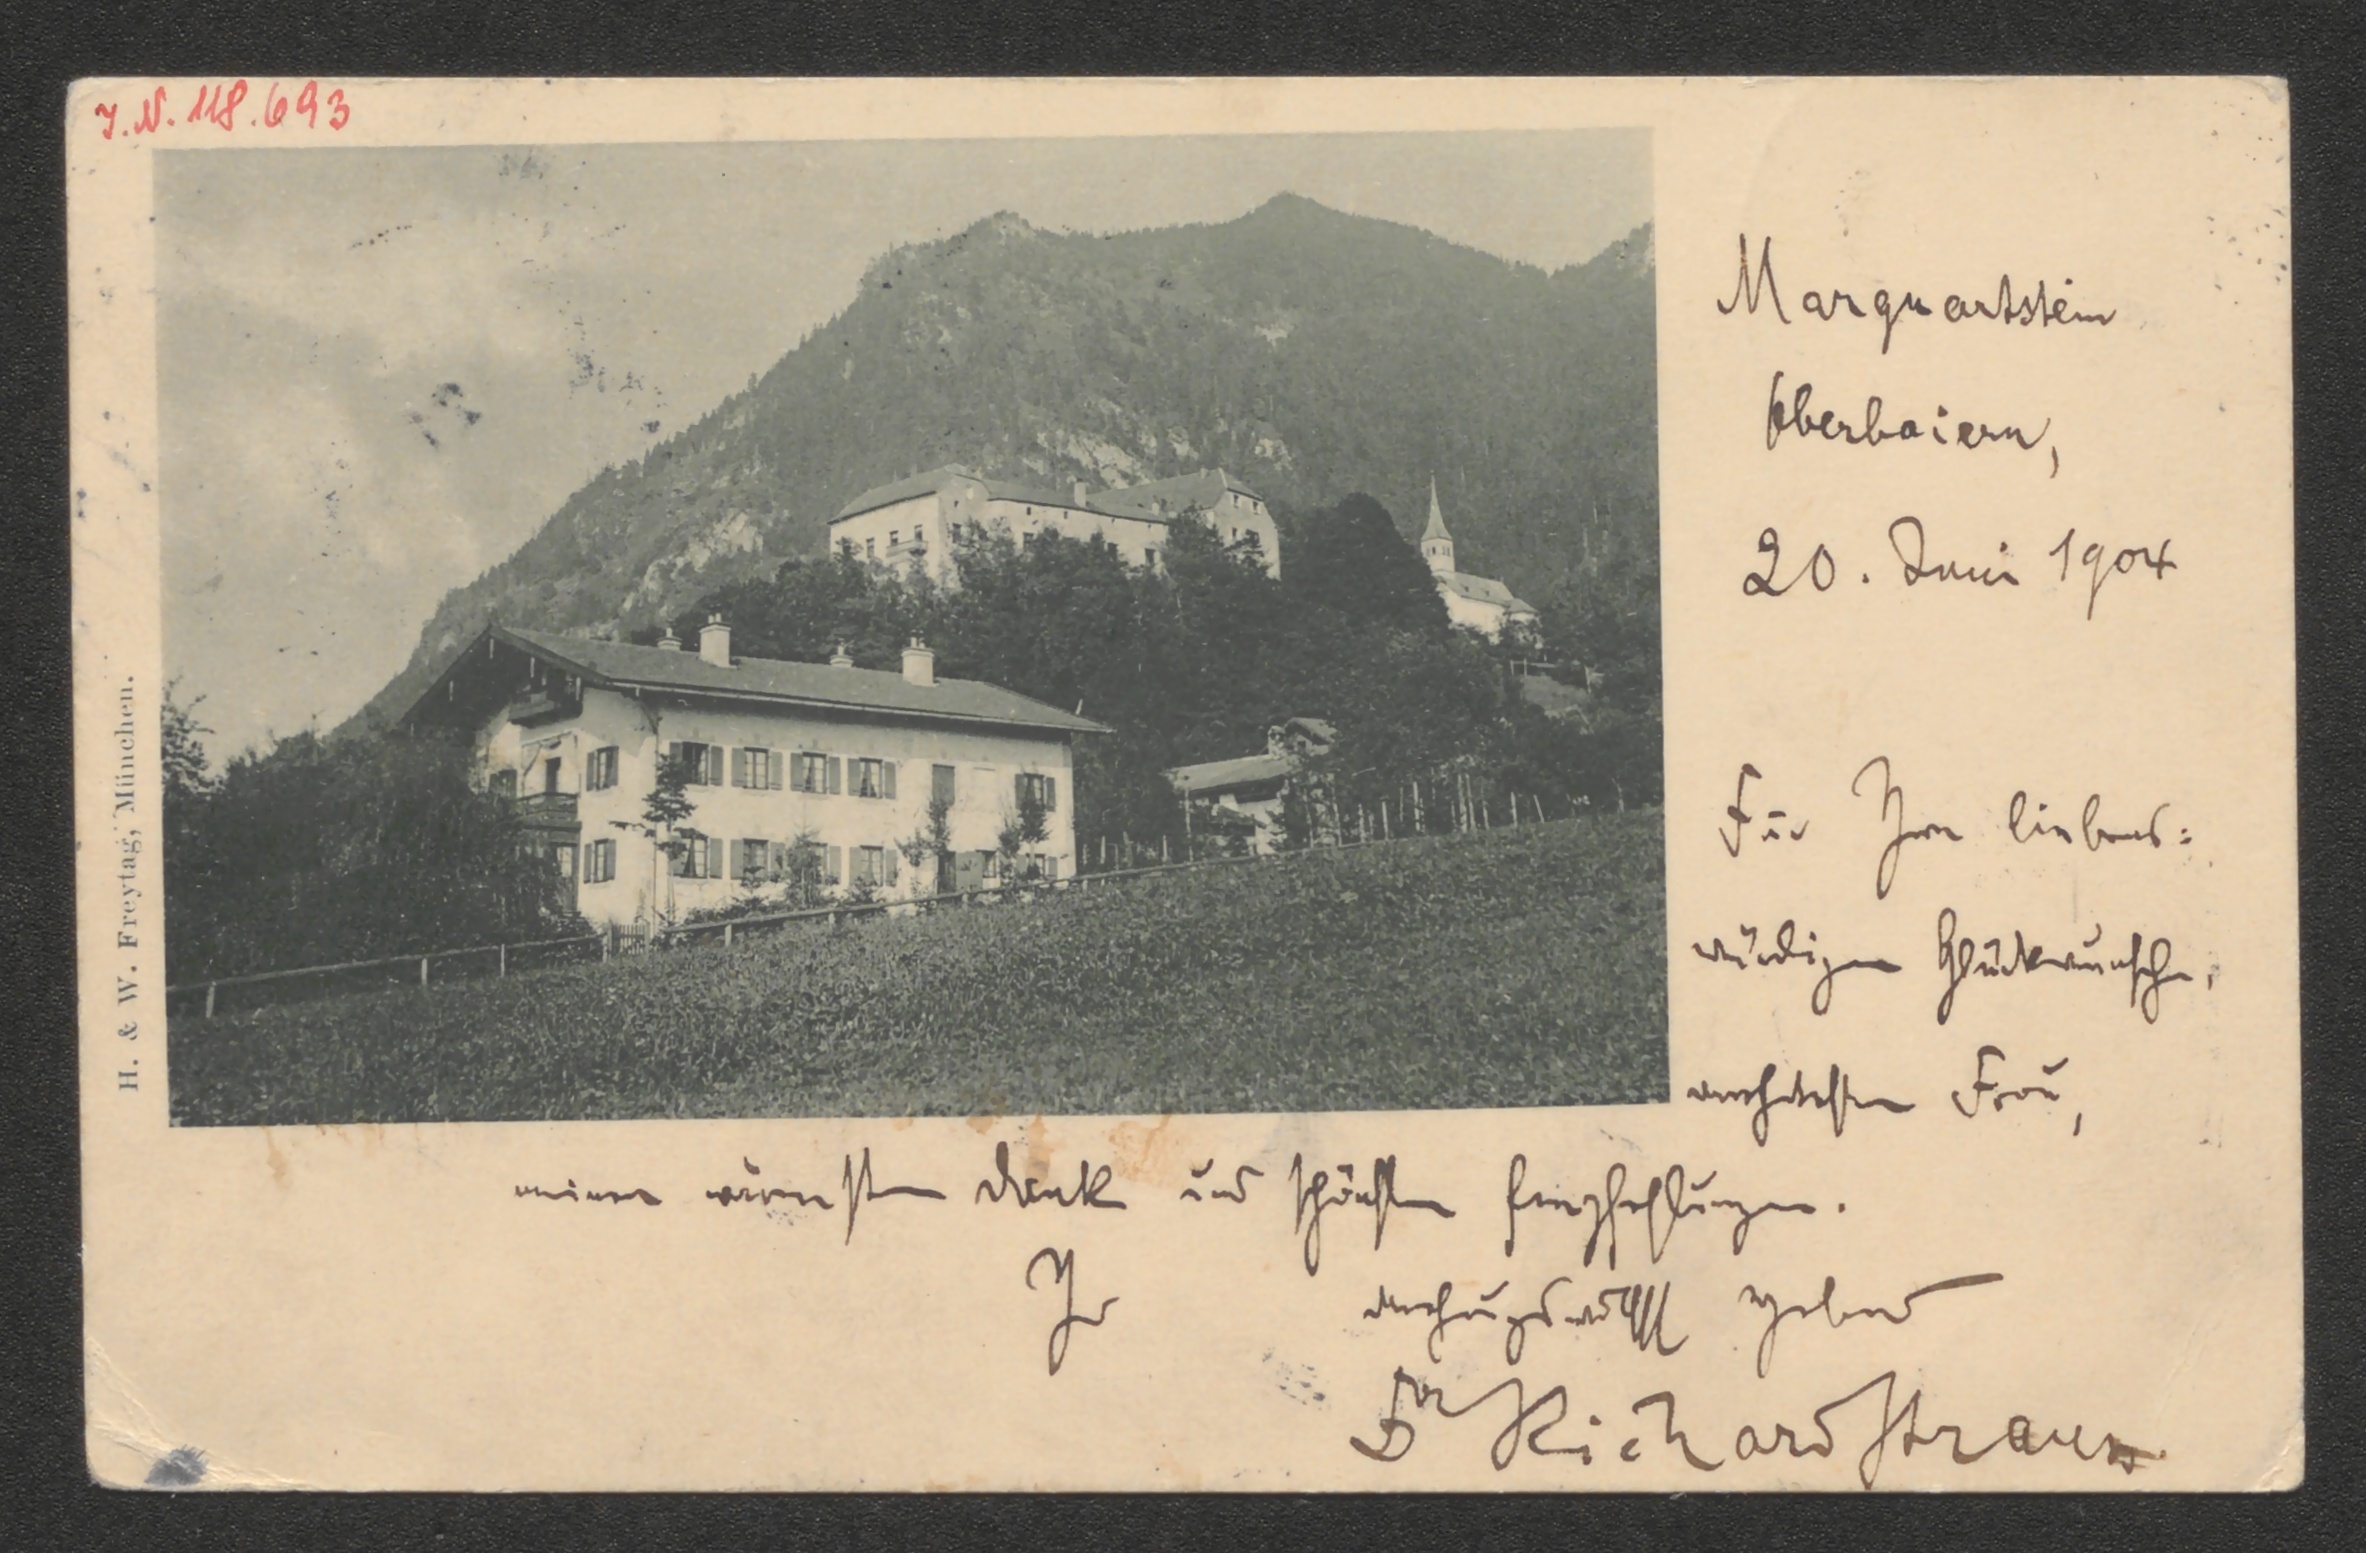 J. N. 118.693
H. & W. Freytag, München.
Marquartstein
Oberbaiern,
20. Juni 1904
Für Ihren liebens=
würdigen Glückwunsch,
verehrteste Frau,
meinen wärmsten Dank und schönste Empfehlungen.
Ihr hochachtungsvollst ergebener
Dr Richard Strauss